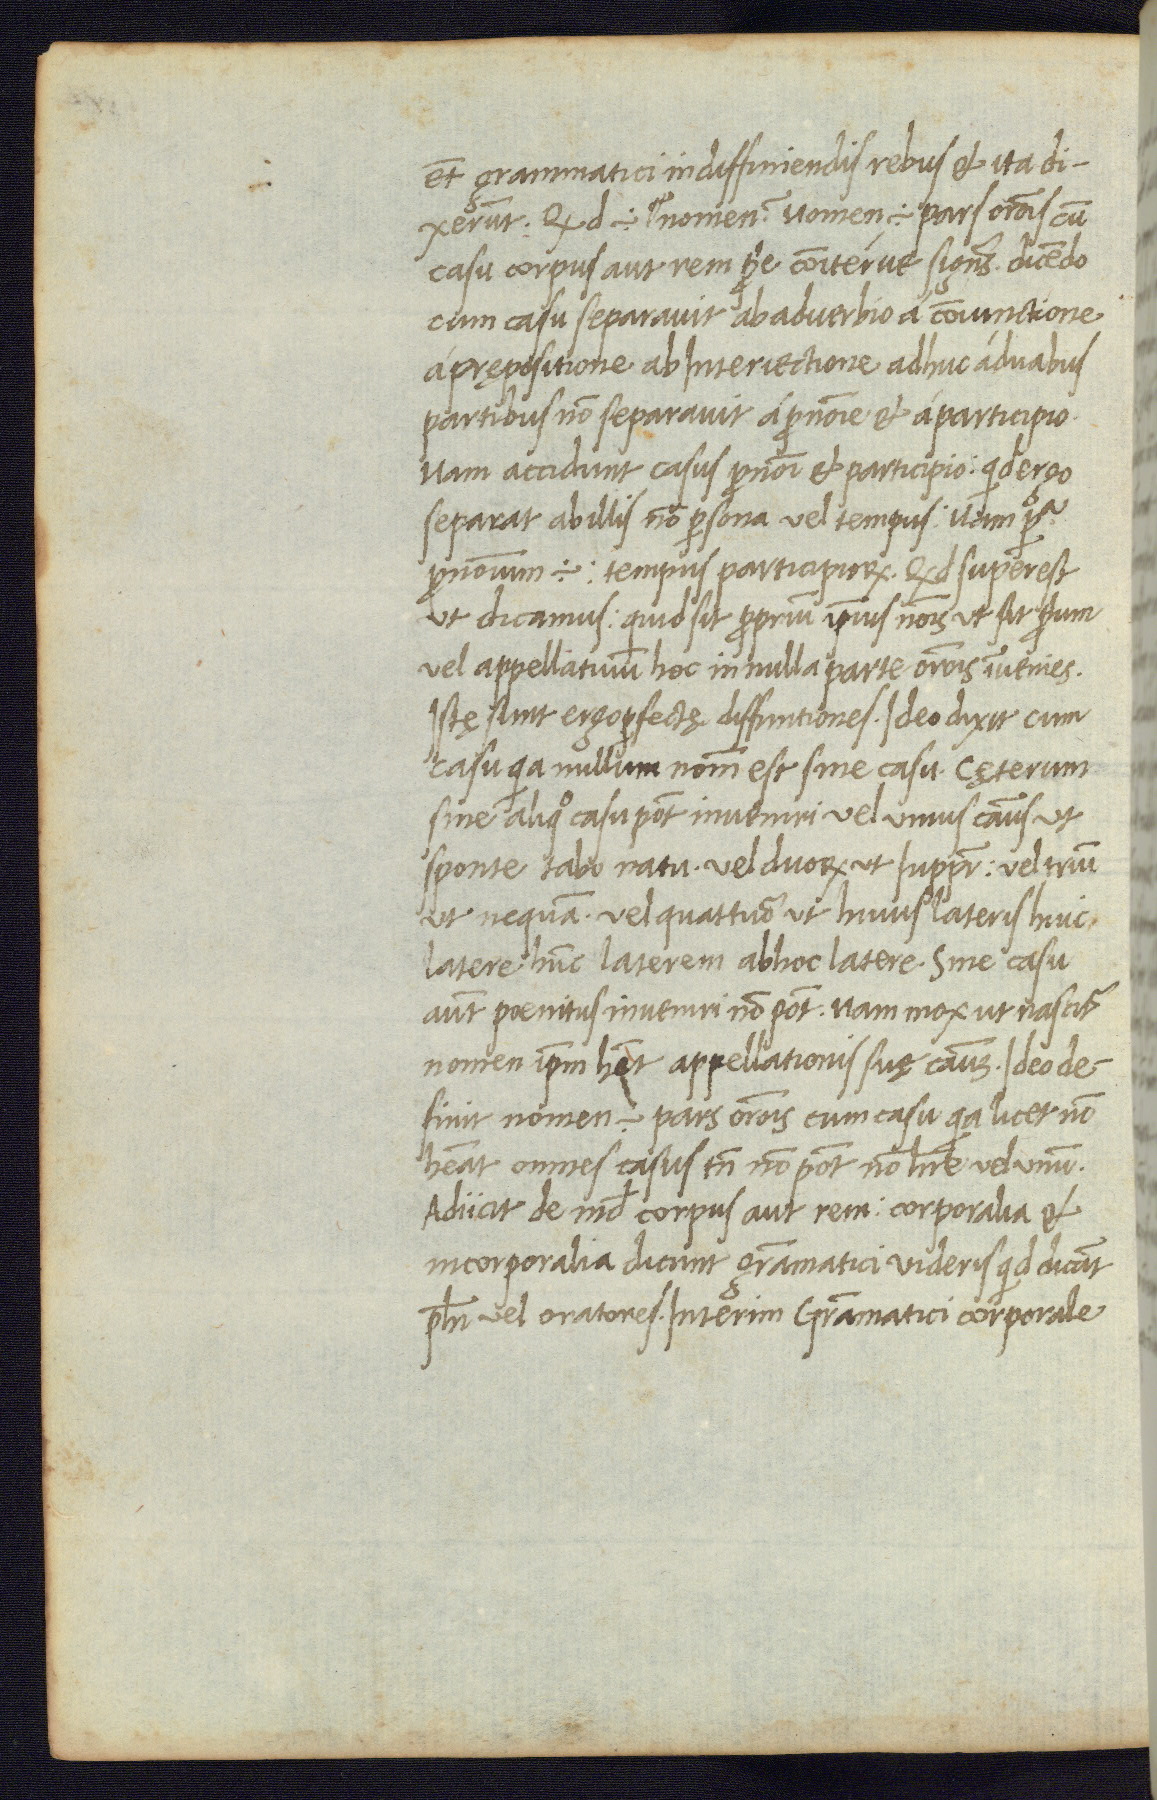 et̄ grammatici in diffiniendis rebus & ita di-
xerūt: Qd ÷ nomen? Nomen ÷ pars orōis cū
casu corpus aut rem ꝓp̄e cōiter ue signās. dicēdo
cum casu separauit ab aduerbio á cōiunctione
á prępositione ab Interiectione adhuc á duabus
partibus nō separauit á p̱nōīe & á participio.
Nam accidunt casus p̱nōī & participio: qd ergo
separat ab illis nō p̱sona vel tempus: Nam
p̱nōīum ÷: tempus participioꝝ. Qd superest
ut dicamus: quid sit ꝓpriū ip̄ius nōīs ut sit ꝓp̄ium
vel appellatiuū hoc in nulla parte orōis īuenies.
Istę sunt ergo p̱fectę diffinitiones. Ideo dixit cum
casu q̱a nullum nom̄ est sine casu. Cęterum
sine aliqͦ casu pōt inueniri vel unius cāus ut
sponte tabo natu. vel duoꝝ ut Iuppr̄: vel triū
ut nequā. vel quattuoꝛ̄ ut huius lateris huic
latere hūc laterem ab hoc latere. Sine casu
aūt poenitus inueniri nō pōt: Nam mox ut nascit̄
nomen ip̄m hēt appellationis suę cāus. Ideo de-
finit nomen ÷ pars orōis cum casu q̱a licet nō
hēat omnes casus tn̄ nō pōt nō hr̄e vel unū.
Adiicit de īnd̄ corpus aut rem: corporalia &
incorporalia dicunt grāmatici videris qd dicāt
phī vel oratores. Interim Grāmatici corporale